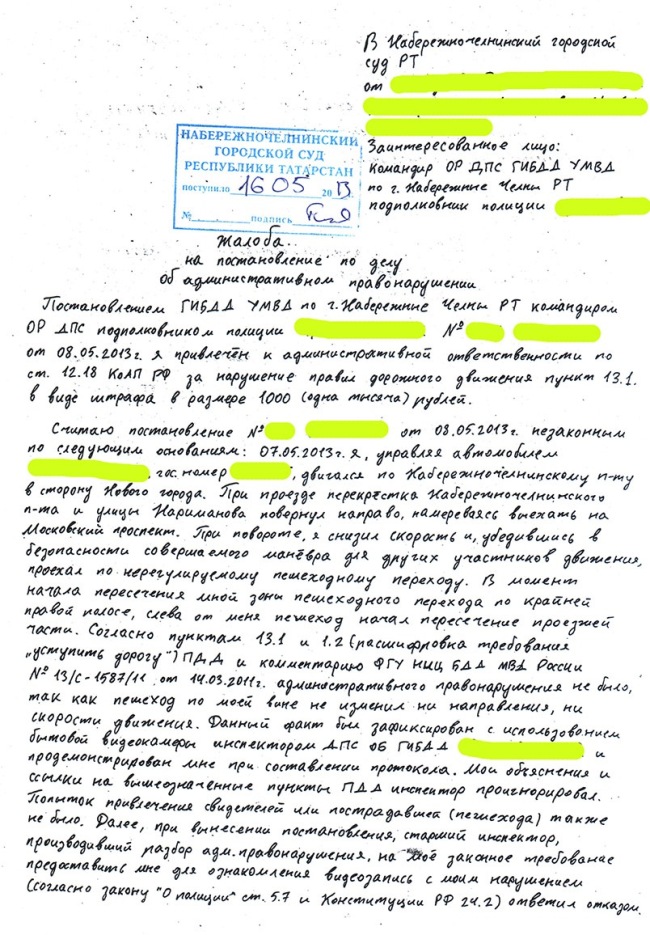 В Набережночелнинский городской
суд РТ
от
Заинтересованное лицо:
командир ОР ДПС ГИБДД УМВД
по г. Набережные Челны РТ
подполковник полиции
НАБЕРЕЖНОЧЕЛНИНСКИЙ
ГОРОДСКОЙ СУД
РЕСПУБЛИКИ ТАТАРСТАН
поступило 16 05 2013
№ подпись
Жалоба
на постановление по делу
об административном правонарушении
Постановлением ГИБДД УМВД по г. Набережные Челны РТ командиром
ОР ДПС подполковником полиции №
от 08.05.2013г. я привлечён к административной ответственности по
ст. 12.18 КоАП РФ за нарушение правил дорожного движения пункт 13.1.
в виде штрафа в размере 1000 (одна тысяча) рублей.
Считаю постановление № от 08.05.2013г. незаконным
по следующим основаниям: 07.05.2013г. я, управляя автомобилем
, гос. номер , двигался по Набережночелнинскому п-ту
в сторону Нового города. При проезде перекрёстка Набережночелнинского
п-та и улицы Нариманова повернул направо, намереваясь выехать на
Московский проспект. При повороте, я снизил скорость и, убедившись в
безопасности совершаемого манёвра для других участников движения,
проехал по нерегулируемому пешеходному переходу. В момент
начала пересечения мной зоны пешеходного перехода по крайней
правой полосе, слева от меня пешеход начал пересечение проезжей
части. Согласно пунктам 13.1 и 1.2 (расшифровка требования
„уступить дорогу") ПДД и комментарию ФГУ НИЦ БДД МВД России
№ 13/С-1587/11 от 14.03.2011г. административного правонарушения не было,
так как пешеход по моей вине не изменил ни направления, ни
скорости движения. Данный факт был зафиксирован с использованием
бытовой видеокамеры инспектором ДПС ОБ ГИБДД и
продемонстрирован мне при составлении протокола. Мои объяснения и
ссылки на вышеозначенные пункты ПДД инспектор проигнорировал.
Попыток привлечения свидетелей или пострадавшего (пешехода) также
не было. Далее, при вынесении постановления, старший инспектор,
производивший разбор адм. правонарушения, на моё законное требование
предоставить мне для ознакомления видеозапись с моим нарушением
(согласно закону "О полиции" ст. 5.7 и Конституции РФ 24.2) ответил отказом.